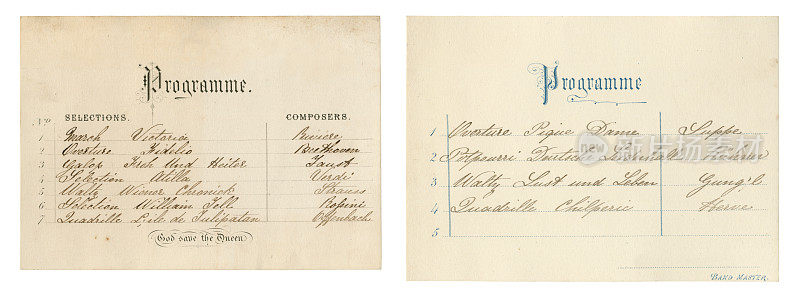 Programme.
No SELECTIONS. COMPOSERS.
1 March Victoria Riviere
2 Overture Fidelio Beethoven
3 Galop Frish Und Heiter Faust
4 Selection Atilla Verdi
5 Waltz Wiener Chronick Strauss
6 Selection William Tell Rossini
7 Quadrille L'ile de Tulipatan Offenbach
God save the Queen
Programme
1 Overture Pique Dame Suppe
2 Potpourri
3 Waltz Lust und Leben Gung'l
4 Quadrille Chilperic Herve
5
BAND MASTER.